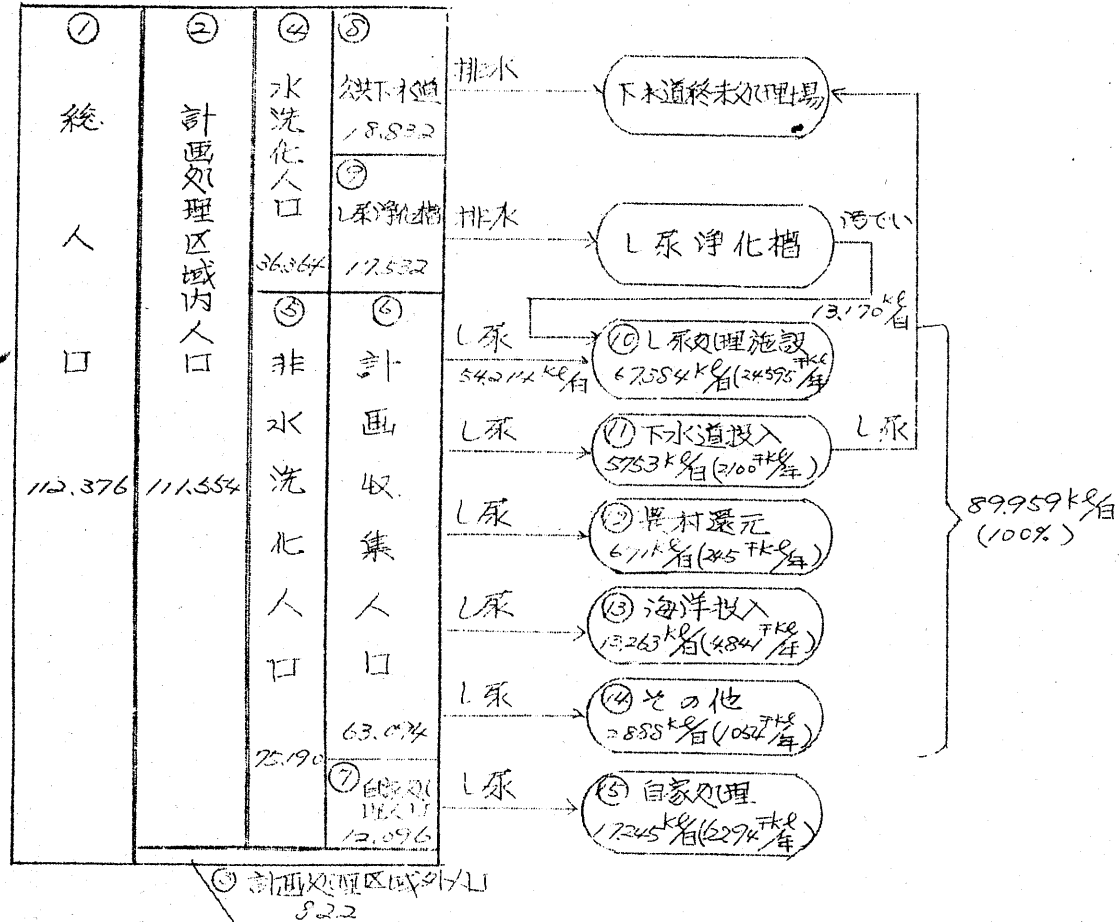 ①
総人口
112.376
②
計画処理区域内人口
111.554
④
水洗化人口
36.364
⑧
公共下水道
18.832
⑨
し尿浄化槽
17.532
⑤
非水洗化人口
75.190
⑥
計画収集人口
63.094
⑦
自家処理人口
12.096
③ 計画処理区域外人口
822
排水
下水道終末処理場
排水
し尿浄化槽
汚でい
13,170 kℓ/日
し尿
54214 kℓ/日
⑩ し尿処理施設
67384 kℓ/日(24595千kℓ/年
し尿
⑪ 下水道投入
5753 kℓ/日(2100千kℓ/年)
し尿
し尿
⑫ 農村還元
671 kℓ/日(245千kℓ/年)
し尿
⑬ 海洋投入
13,263 kℓ/日(4841千kℓ/年)
し尿
⑭ その他
2888 kℓ/日(1054千kℓ/年)
し尿
⑮ 自家処理
17245 kℓ/日(6294千kℓ/年)
89.959 kℓ/日
(100%)